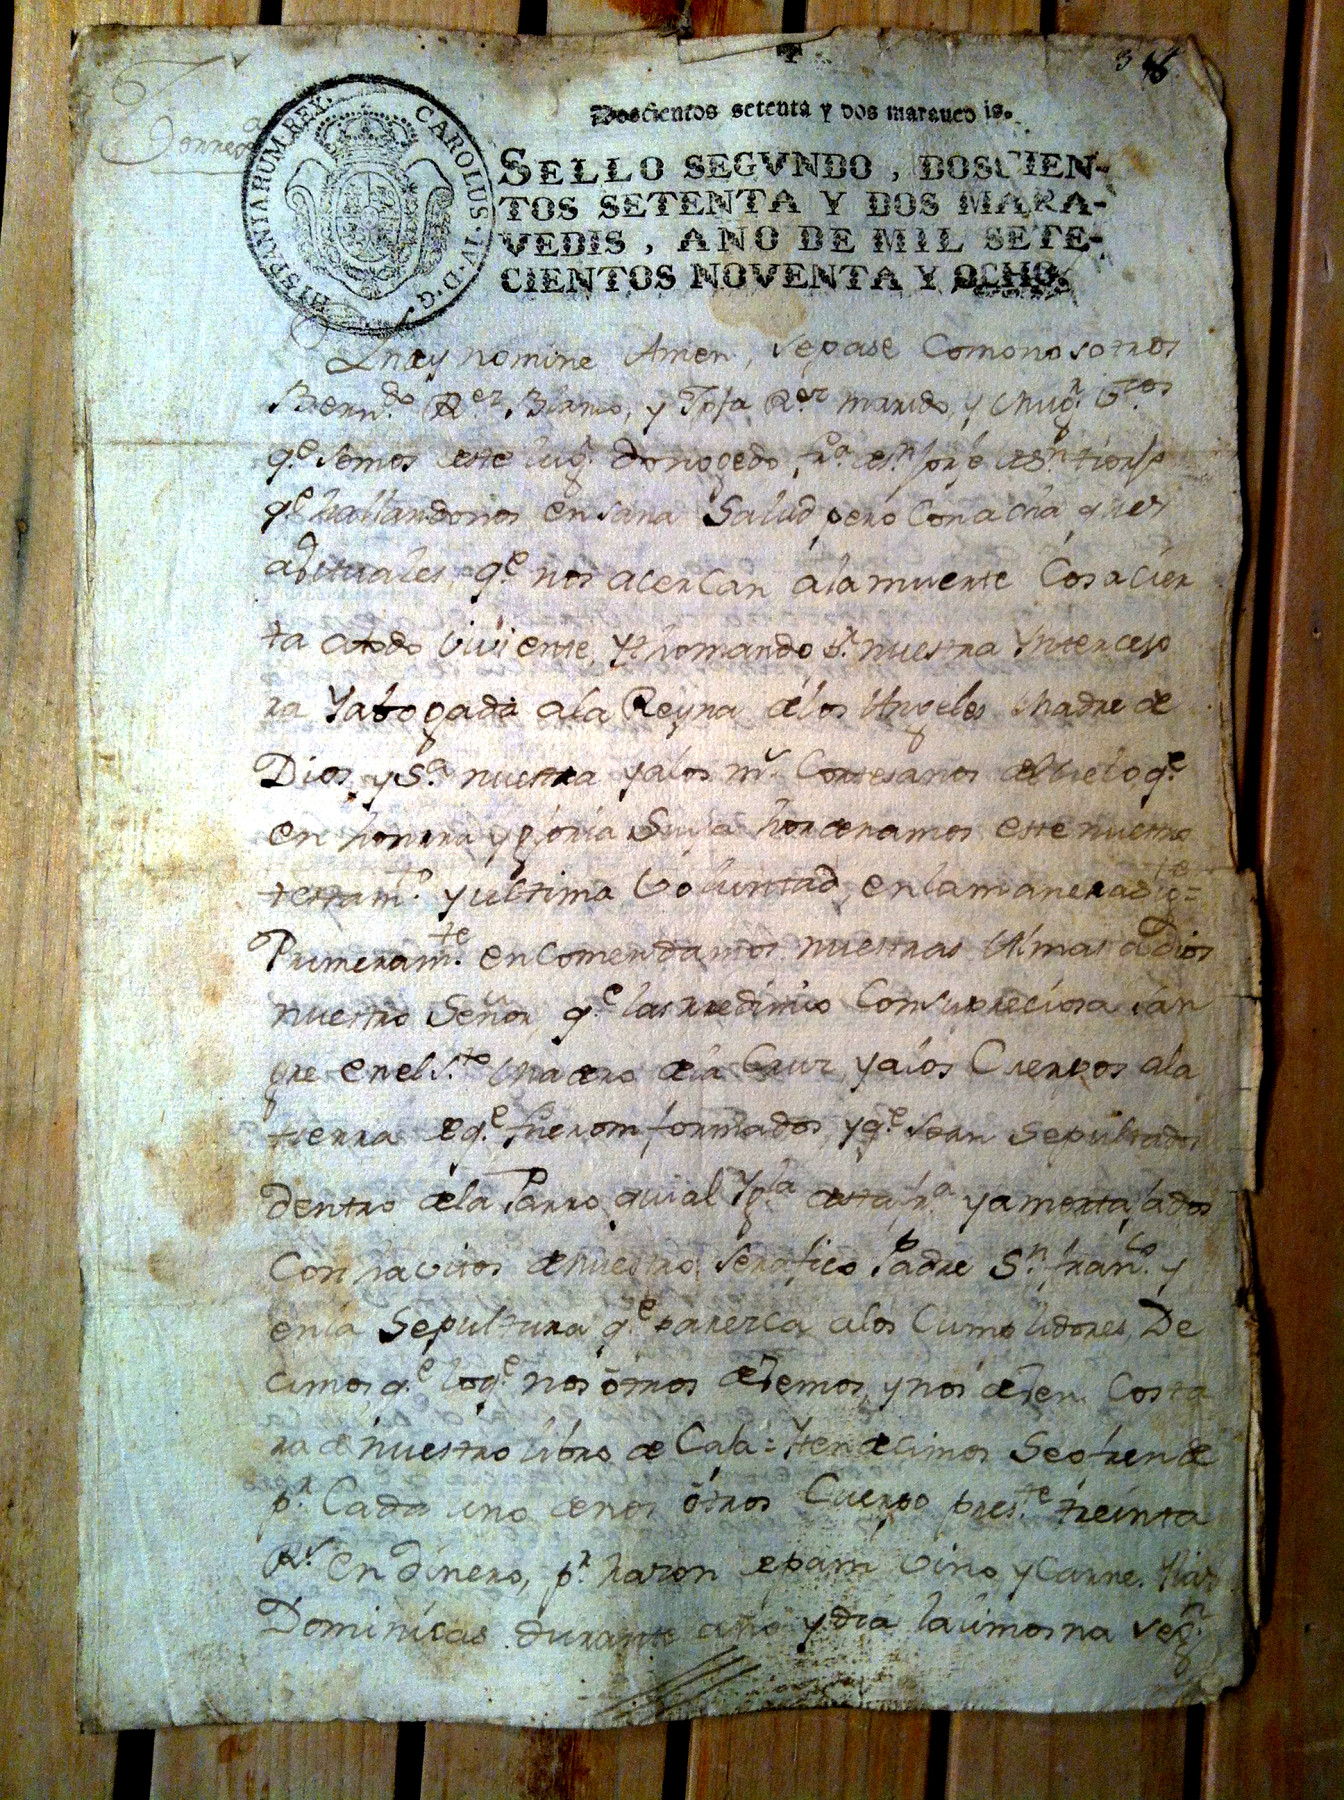 Doscientos setenta y dos maravedis.
HISPANIARUM REX. CAROLUS. IV. D. G.
SELLO SEGVNDO, DOSCIEN-
TOS SETENTA Y DOS MARA-
VEDIS, AÑO DE MIL SETE-
CIENTOS NOVENTA Y OCHO.
nomine Amen, sepase Comono sotros
Bern.do R.ez Blanco, y R.ez marido, y
q.e semos deste lug.r
q.e hallandonos en sana Salud pero Con acha ques
abituales q.e nos acercan ala muerte Cosa cier
ta atodo viviente, y thomando p.r nuestra Ynterceso
ra Yabogada ala Reyna delos Angeles Madre de
Dios y S.a nuestra yalos Cortesanos del cielo q.e
en honrra y gloria Suya hordenamos este nuestro
testam.to y ultima Voluntad, enlamanera sig.te =
Primeram.te encomendamos nuestras Almas aDios
nuestro Señor q.e lasrredimio Consupreciosa san
gre enel S.to Madero dela Cruz yalos Cuerpos ala
tierra deq.e fuerom formados yq.e sean Sepultados
dentro dela Parro quial Yg.la desta fr.a yamortajados
Con havitos denuestro serafico Padre S.n fran.co y
enla Sepultura q.e parezca alos Cumplidores, De
cimos q.e loq.e nos otros debemos y nos deben Costa
ra de nuestro libro de Caja = Yten decimos Seofrende
p.r Cada uno denos otros Cuerpo pres.te treinta
R.s en dinero, p.r razon depam vino y Carne.
Dominicas durante año ydia lalimosna